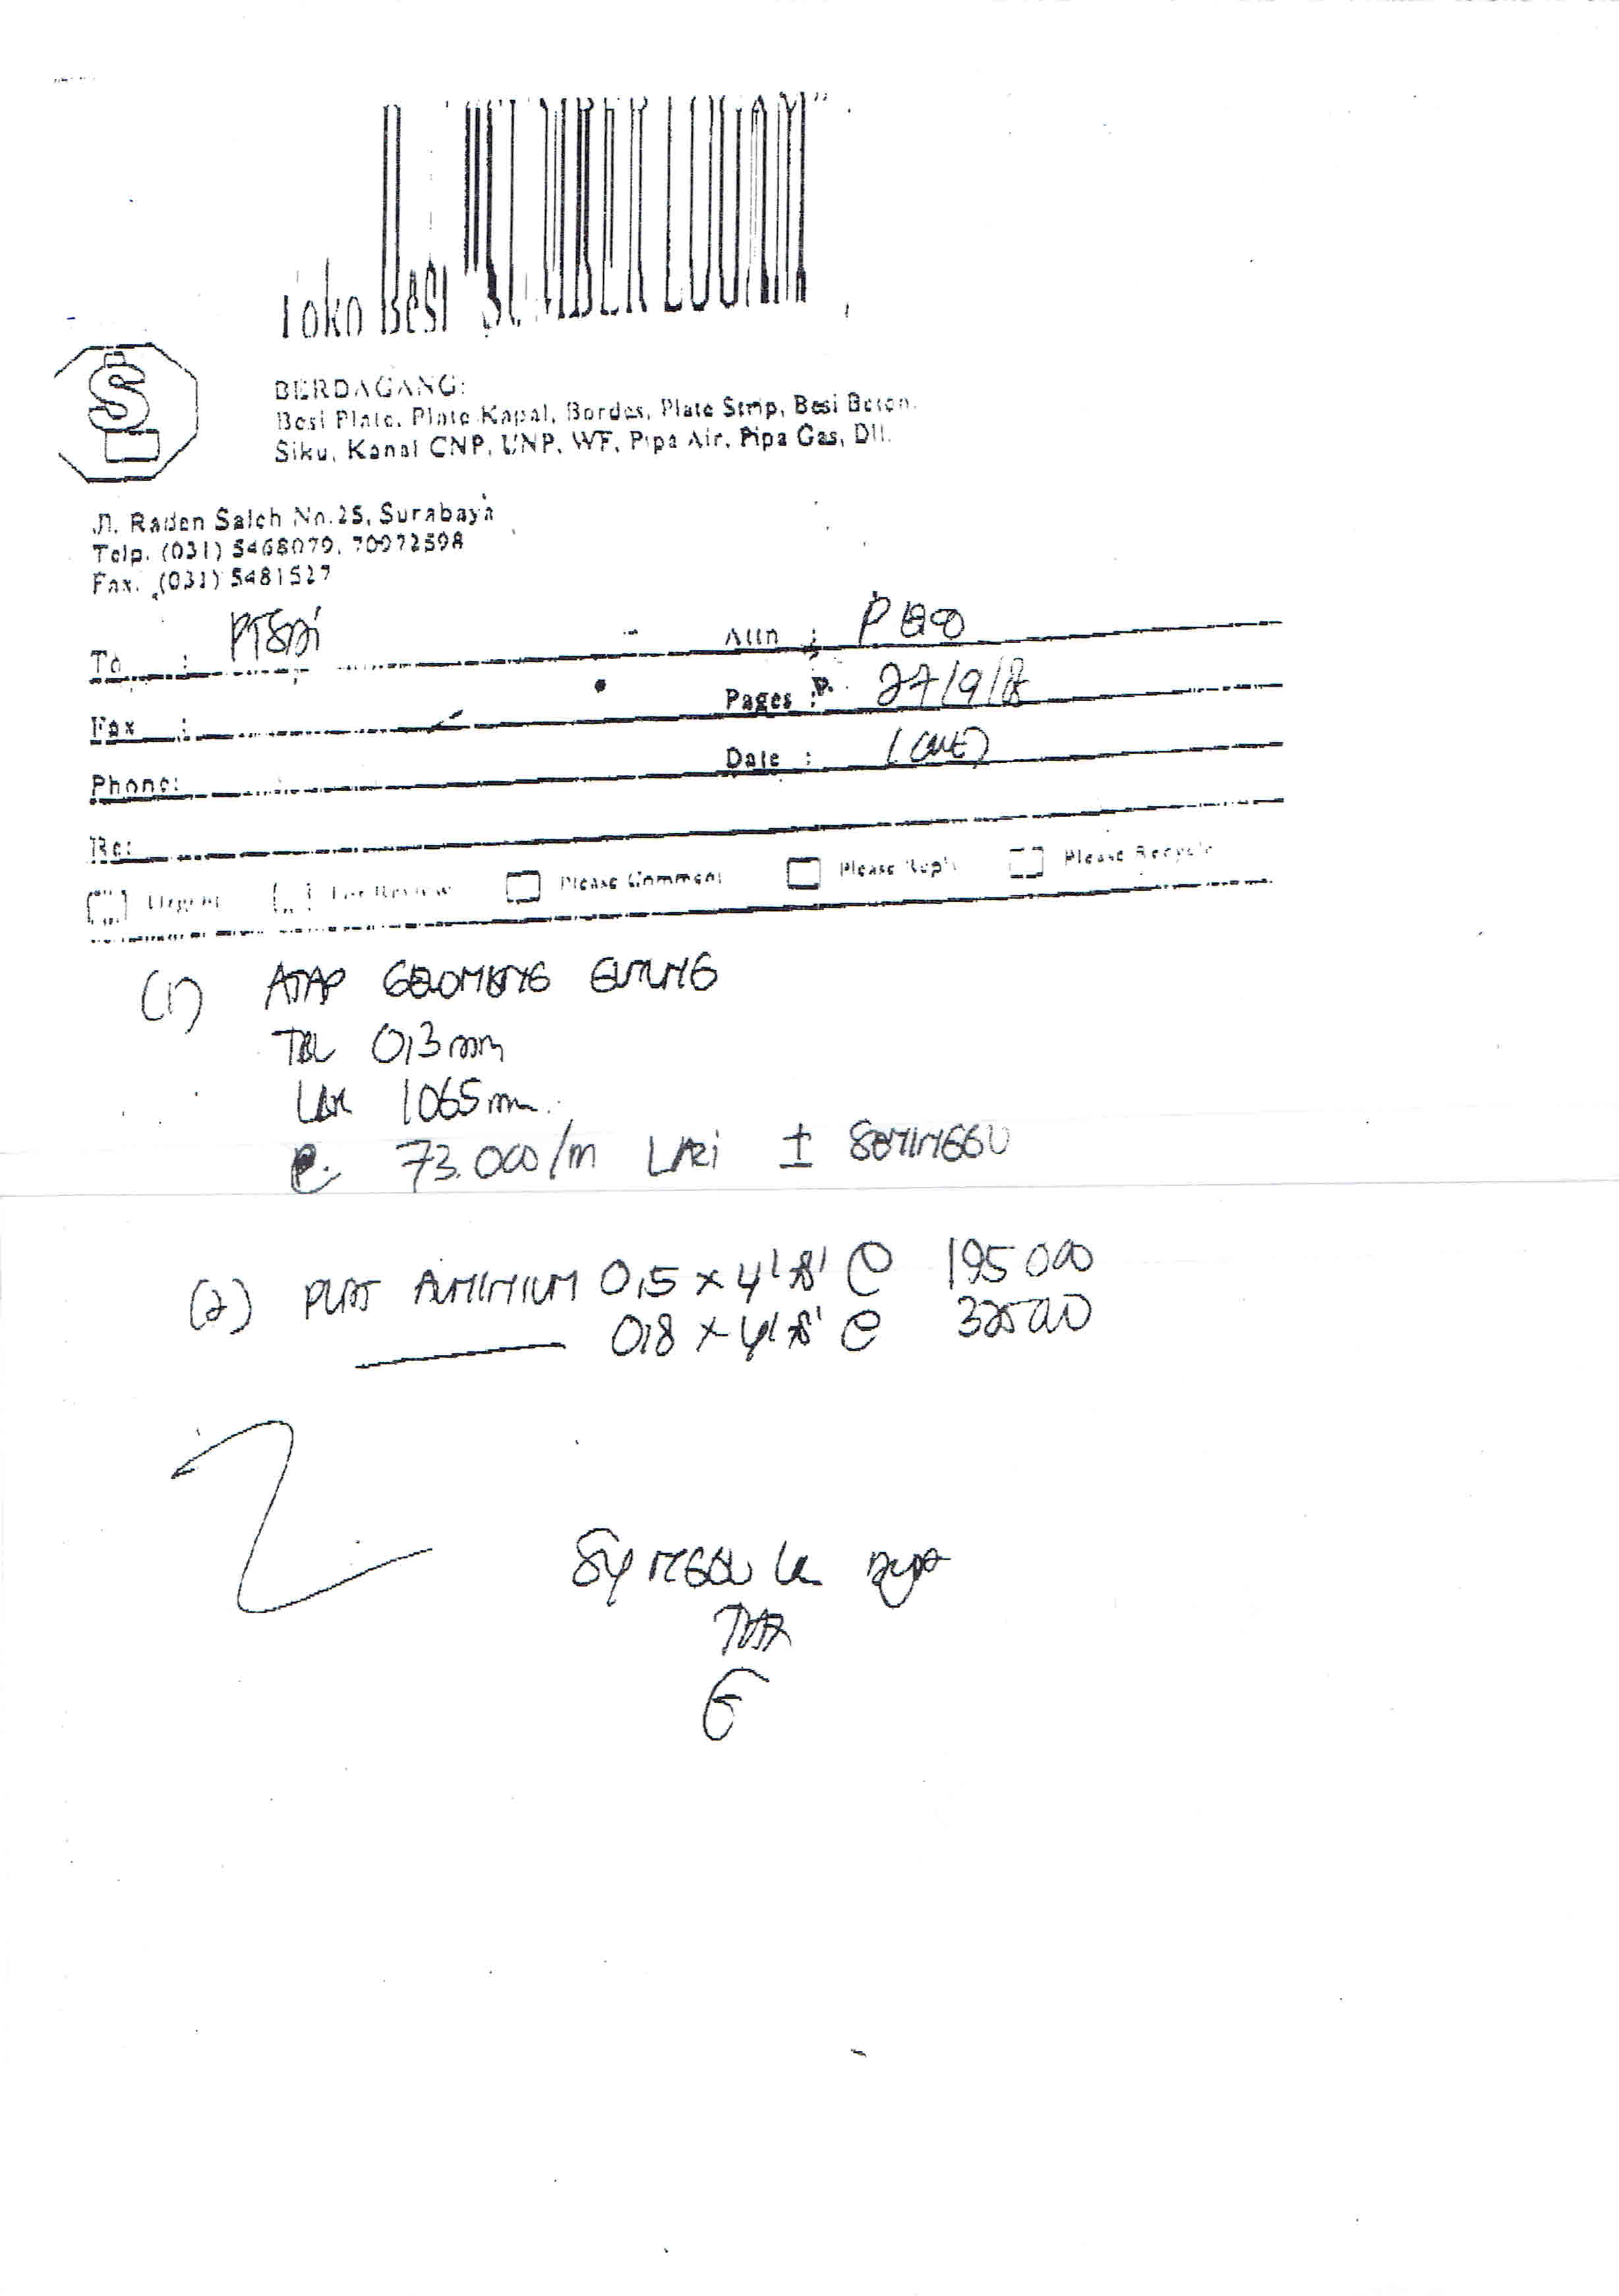 Toko Besi "SUMBER LOGAM"
BERDAGANG:
Besi Plate, Plate Kapal, Bordes, Plate Strip, Besi Beton,
Siku, Kanal CNP, UNP, WF, Pipa Air, Pipa Gas, Dll.
Jl. Raden Saleh No.25, Surabaya
Telp. (031) 5468079, 70972598
Fax. (031) 5481527
To :
Attn :
Fax :
Pages : 27/9/18
Phone:
Date :
Re:
Urgent For Review Please Comment Please Reply Please Recycle
(1) ATAP GELOMBANG
TBL 0,3 mm
1065 mm
@ 73.000/m LARI ± SEMINGGU
(2) PLAT ALUMINIUM 0,5 x 4' 8' @ 195 000
0,8 x 4' 8' @